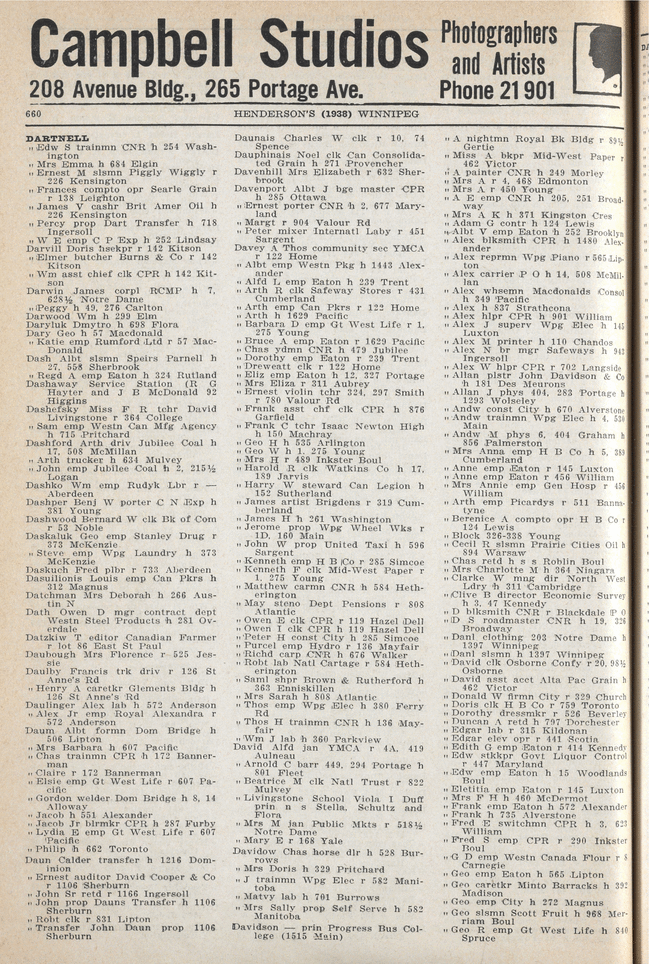 Campbell Studios
208 Avenue Bldg., 265 Portage Ave.
Photographers
and Artists
Phone 21 901
660
HENDERSON'S (1938) WINNIPEG
DARTNELL
„ Edw S trainmn CNR h 254 Wash-
ington
„ Mrs Emma h 684 Elgin
„ Ernest M slsmn Piggly Wiggly r
226 Kensington
„ Frances compto opr Searle Grain
r 138 Leighton
„ James V cashr Brit Amer Oil h
226 Kensington
„ Percy prop Dart Transfer h 718
Ingersoll
„ W E emp C P Exp h 252 Lindsay
Darvill Doris hsekpr r 142 Kitson
„ Elmer butcher Burns & Co r 142
Kitson
„ Wm asst chief clk CPR h 142 Kit-
son
Darwin James corpl RCMP h 7,
628½ Notre Dame
„ Peggy h 49, 276 Carlton
Darwood Wm h 299 Elm
Daryluk Dmytro h 698 Flora
Dary Geo h 57 Macdonald
„ Katie emp Rumford Ltd r 57 Mac-
Donald
Dash Albt slsmn Speirs Parnell h
27, 558 Sherbrook
„ Regd A emp Eaton h 324 Rutland
Dashaway Service Station (R G
Hayter and J B McDonald 92
Higgins
Dashefsky Miss F R tchr David
Livingstone r 364 College
„ Sam emp Westn Can Mfg Agency
h 715 Pritchard
Dashford Arth driv Jubilee Coal h
17, 508 McMillan
„ Arth trucker h 634 Mulvey
„ John emp Jubilee Coal h 2, 215½
Logan
Dashko Wm emp Rudyk Lbr r —
Aberdeen
Dashper Benj W porter C N Exp h
381 Young
Dashwood Bernard W clk Bk of Com
r 53 Noble
Daskaluk Geo emp Stanley Drug r
373 McKenzie
„ Steve emp Wpg Laundry h 373
McKenzie
Daskuch Fred plbr r 733 Aberdeen
Dasuilionis Louis emp Can Pkrs h
312 Magnus
Datchman Mrs Deborah h 266 Aus-
tin N
Dath Owen D mgr contract dept
Westn Steel Products h 281 Ov-
erdale
Datzkiw T editor Canadian Farmer
r lot 86 East St Paul
Daubough Mrs Florence r 525 Jes-
sie
Dauilby Francis trk driv r 126 St
Anne's Rd
„ Henry A caretkr Glements Bldg h
126 St Anne's Rd
Daulinger Alex lab h 572 Anderson
„ Alex Jr emp Royal Alexandra r
572 Anderson
Daum Albt formn Dom Bridge h
506 Lipton
„ Mrs Barbara h 607 Pacific
„ Chas trainmn CPR h 172 Banner-
man
„ Claire r 172 Bannerman
„ Elsie emp Gt West Life r 607 Pa-
cific
„ Gordon welder Dom Bridge h 8, 14
Alloway
„ Jacob h 551 Alexander
„ Jacob Jr blrmkr CPR h 287 Furby
„ Lydia E emp Gt West Life r 607
Pacific
„ Philip h 662 Toronto
Daun Calder transfer h 1216 Dom-
inion
„ Ernest auditor David Cooper & Co
r 1106 Sherburn
„ John Sr retd r 1166 Ingersoll
„ John prop Dauns Transfer h 1106
Sherburn
„ Robt clk r 831 Lipton
„ Transfer John Daun prop 1106
Sherburn
Daunais Charles W clk r 10, 74
Spence
Dauphinais Noel clk Can Consolida-
ted Grain h 271 Provencher
Davenhill Mrs Elizabeth r 632 Sher-
brook
Davenport Albt J bge master CPR
h 285 Ottawa
„ Ernest porter CNR h 2, 677 Mary-
land
„ Margt r 904 Valour Rd
„ Peter mixer Internatl Laby r 451
Sargent
Davey A Thos community sec YMCA
r 122 Home
„ Albt emp Westn Pkg h 1443 Alex-
ander
„ Alfd L emp Eaton h 239 Trent
„ Arth R clk Safeway Stores r 431
Cumberland
„ Arth emp Can Pkrs r 122 Home
„ Arth h 1629 Pacific
„ Barbara D emp Gt West Life r 1,
275 Young
„ Bruce A emp Eaton r 1629 Pacific
„ Chas ydmn CNR h 479 Jubilee
„ Dorothy emp Eaton r 239 Trent
„ Dreweatt clk r 122 Home
„ Eliz emp Eaton h 12, 327 Portage
„ Mrs Eliza r 311 Aubrey
„ Ernest violin tchr 324, 297 Smith
r 780 Valour Rd
„ Frank asst chf clk CPR h 876
Garfield
„ Frank C tchr Isaac Newton High
h 150 Machray
„ Geo H h 535 Arlington
„ Geo W h 1, 275 Young
„ Mrs H r 489 Inkster Boul
„ Harold R clk Watkins Co h 17,
189 Jarvis
„ Harry W steward Can Legion h
152 Sutherland
„ James artist Brigdens r 319 Cum-
berland
„ James H h 261 Washington
„ Jerome prop Wpg Wheel Wks r
1D, 160 Main
„ John W prop United Taxi h 596
Sargent
„ Kenneth emp H B Co r 285 Simcoe
„ Kenneth F clk Mid-West Paper r
1, 275 Young
„ Matthew carmn CNR h 584 Heth-
erington
„ May steno Dept Pensions r 808
Atlantic
„ Owen E clk CPR r 119 Hazel Dell
„ Owen T clk CPR h 119 Hazel Dell
„ Peter H const City h 285 Simcoe
„ Purcel emp Hydro r 136 Mayfair
„ Richd carp CNR h 676 Walker
„ Robt lab Natl Cartage r 584 Heth-
erington
„ Saml shpr Brown & Rutherford h
363 Enniskillen
„ Mrs Sarah h 808 Atlantic
„ Thos emp Wpg Elec h 380 Ferry
Rd
„ Thos H trainmn CNR h 136 May-
fair
„ Wm J lab h 360 Parkview
David Alfd jan YMCA r 4A, 419
Aulneau
„ Arnold C barr 449, 294 Portage h
801 Fleet
„ Beatrice M clk Natl Trust r 822
Mulvey
„ Livingstone School Viola I Duff
prin n s Stella, Schultz and
Flora
„ Mrs M jan Public Mkts r 518½
Notre Dame
„ Mary E r 168 Yale
Davidow Chas horse dlr h 528 Bur-
rows
„ Mrs Doris h 329 Pritchard
„ J trainmn Wpg Elec r 582 Mani-
toba
„ Matvy lab h 701 Burrows
„ Mrs Sally prop Self Serve h 582
Manitoba
Davidson — prin Progress Bus Col-
lege (1515 Main)
„ A nightmn Royal Bk Bldg r 89½
Gertie
„ Miss A bkpr Mid-West Paper r
462 Victor
„ A painter CNR h 249 Morley
„ Mrs A r 4, 468 Edmonton
„ Mrs A r 450 Young
„ A E emp CNR h 205, 251 Broad-
way
„ Mrs A K h 371 Kingston Cres
„ Adam G contr h 124 Lewis
„ Albt V emp Eaton h 252 Brooklyn
„ Alex blksmith CPR h 1480 Alex-
ander
„ Alex reprmn Wpg Piano r 565 Lip-
ton
„ Alex carrier P O h 14, 508 McMil-
lan
„ Alex whsemn Macdonalds Consol
h 349 Pacific
„ Alex h 837 Strathcona
„ Alex hlpr CPR h 901 William
„ Alex J superv Wpg Elec h 145
Luxton
„ Alex M printer h 110 Chandos
„ Alex N br mgr Safeways h 941
Ingersoll
„ Alex W hlpr CPR r 702 Langside
„ Allan plstr John Davidson & Co
h 181 Des Meurons
„ Allan J phys 404, 283 Portage h
1293 Wolseley
„ Andw const City h 670 Alverstone
„ Andw trainmn Wpg Elec h 4, 530
Main
„ Andw M phys 6, 404 Graham h
856 Palmerston
„ Mrs Anna emp H B Co h 5, 389
Cumberland
„ Anne emp Eaton r 145 Luxton
„ Anne emp Eaton r 456 William
„ Mrs Annie emp Gen Hosp r 456
William
„ Arth emp Picardys r 511 Banna-
tyne
„ Berenice A compto opr H B Co r
124 Lewis
„ Block 326-338 Young
„ Cecil R slsmn Prairie Cities Oil h
894 Warsaw
„ Chas retd h s s Roblin Boul
„ Mrs Charlotte M h 364 Niagara
„ Clarke W mng dir North West
Ldry h 311 Cambridge
„ Clive B director Economic Survey
h 3, 47 Kennedy
„ D blksmith CNR r Blackdale P O
„ D S roadmaster CNR h 19, 326
Broadway
„ Danl clothing 203 Notre Dame h
1397 Winnipeg
„ Danl slsmn h 1397 Winnipeg
„ David clk Osborne Confy r 20, 98½
Osborne
„ David asst acct Alta Pac Grain h
462 Victor
„ Donald W firmn City r 329 Church
„ Doris clk H B Co r 759 Toronto
„ Dorothy dressmkr r 526 Beverley
„ Duncan A retd h 797 Dorchester
„ Edgar lab r 315 Kildonan
„ Edgar elev opr r 441 Scotia
„ Edith G emp Eaton r 414 Kennedy
„ Edw stkkpr Govt Liquor Control
r 447 Maryland
„ Edw emp Eaton h 15 Woodlands
Boul
„ Eletitia emp Eaton r 145 Luxton
„ Mrs F H h 460 McDermot
„ Frank emp Eaton h 572 Alexander
„ Frank h 735 Alverstone
„ Fred E switchmn CPR h 3, 623
William
„ Fred S emp CPR r 290 Inkster
Boul
„ G D emp Westn Canada Flour r 8
Carnegie
„ Geo emp Eaton h 565 Lipton
„ Geo caretkr Minto Barracks h 392
Madison
„ Geo emp City h 272 Magnus
„ Geo slsmn Scott Fruit h 968 Mer-
riam Boul
„ Geo R emp Gt West Life h 840
Spruce